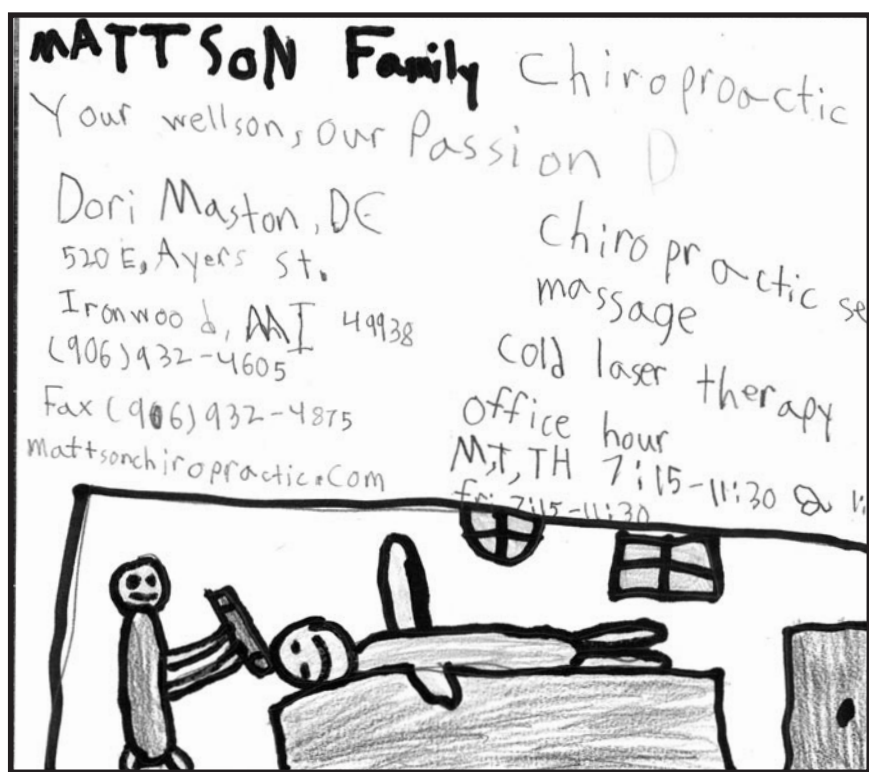 MATTSON Family Chiroproactic
Your wellson, our Passion D
Dori Maston, DC
520 E, Ayers st.
Ironwood, MI 49938
(906)932-4605
Fax (906)932-4875
mattsonchiropractic.com
Chiropractic se
massage
cold laser therapy
office hour
M,T,TH 7:15-11:30
fri 7:15-11:30